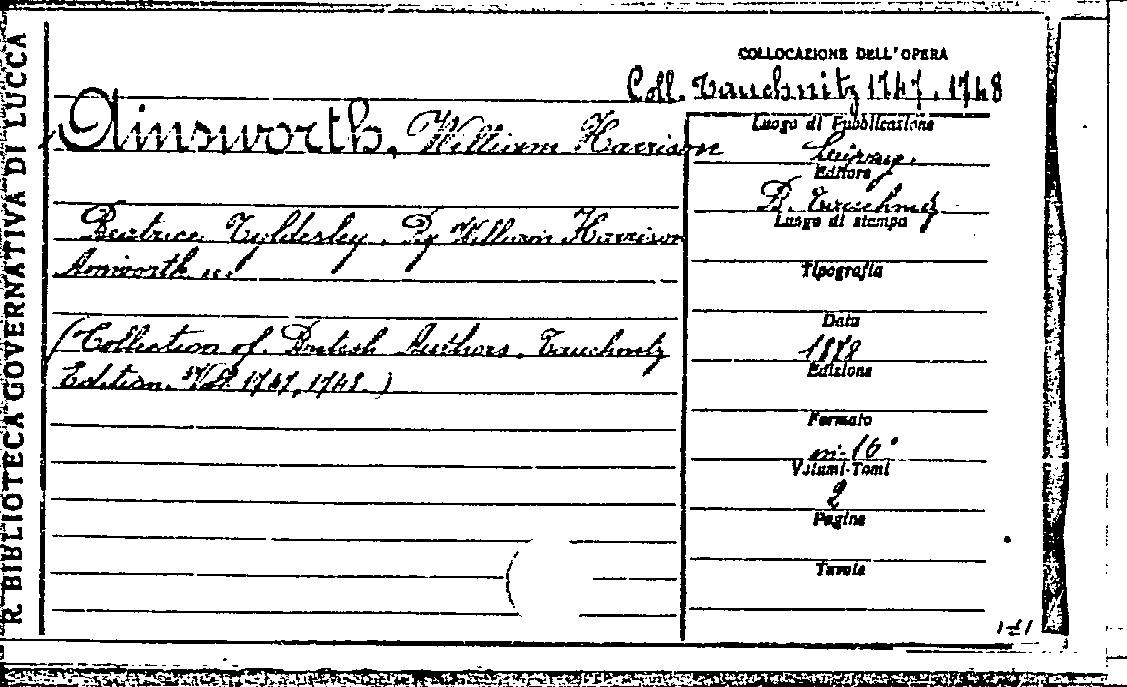 R BIBLIOTECA GOVERNATIVA DI LUCCA
COLLOCAZIONE DELL'OPERA
Coll. Tauchnitz 1747. 1748
Ainsworth, William Harrison
Luogo di Pubblicazione
Leipzig.
Editore
B. Tauchnitz
Luogo di stampa
Beatrice Tyldesley. By William Harrison
Ainsworth ...
Tipografia
(Collection of British Authors. Tauchnitz
Edition. Vol. 1747, 1748.)
Data
1878
Edizione
Formato
in-16°
Volumi-Tomi
2
Pagine
Tavole